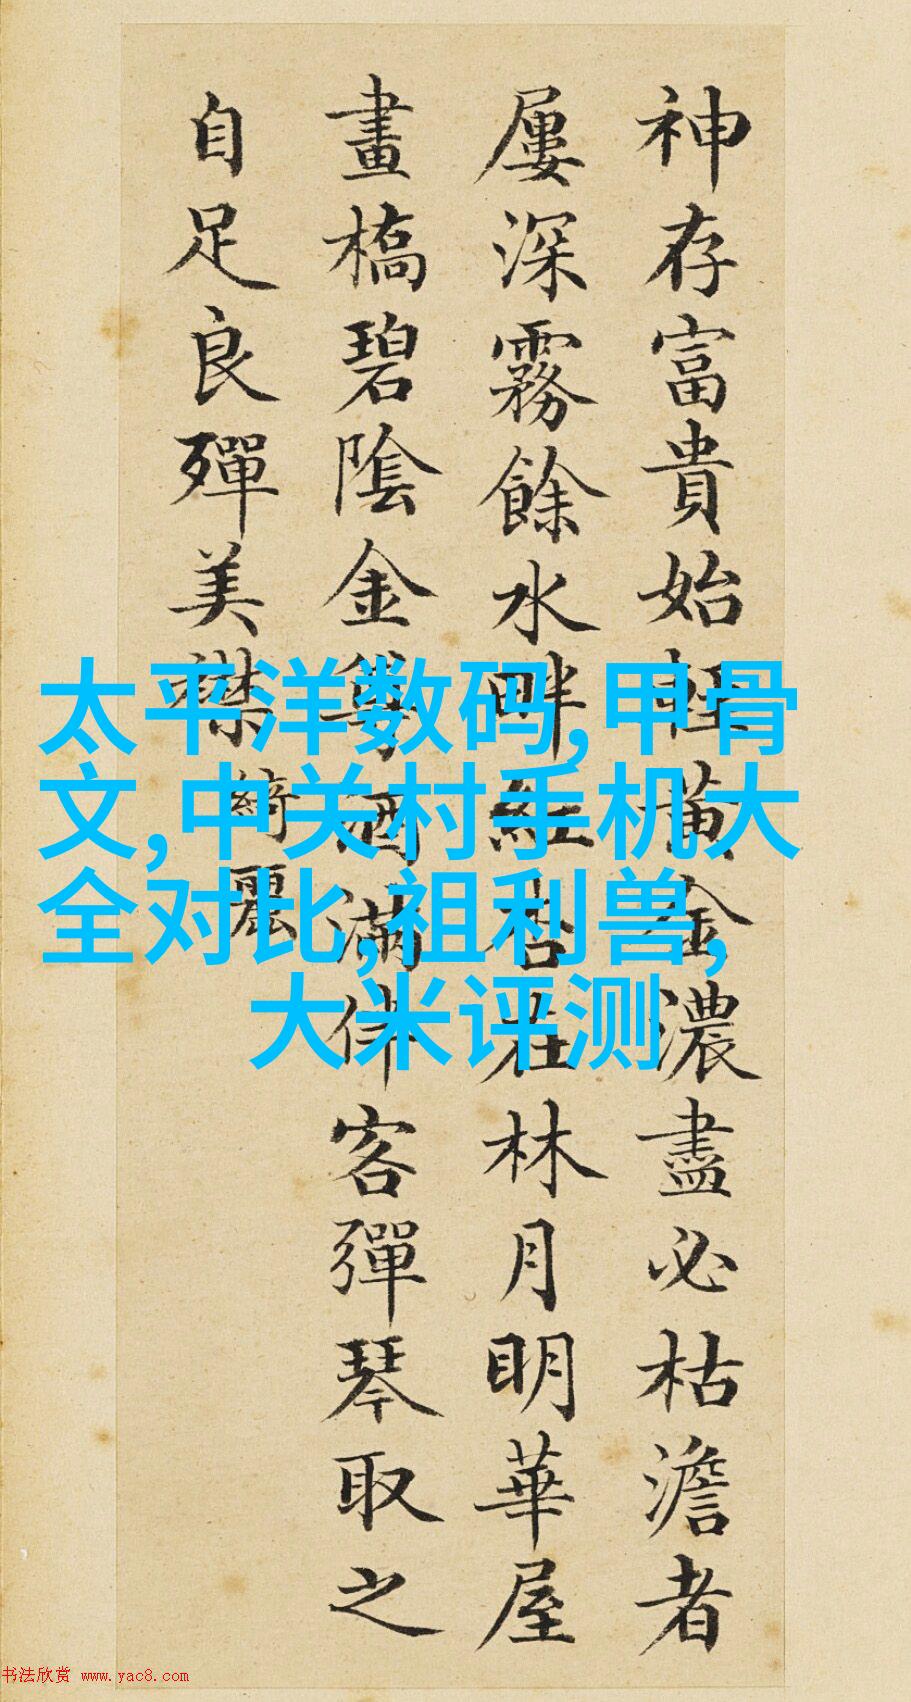 神存富貴始輕黄金濃盡必枯澹者
屢深霧餘水畔紅杏在林月明華屋
畫橋碧陰金尊酒滿伴客彈琴取之
自足良殫美襟
綺麗
太平洋数码,甲骨
文,中关村手机大
全对比,祖利兽,
大米评测
书法欣赏 www.yac8.com